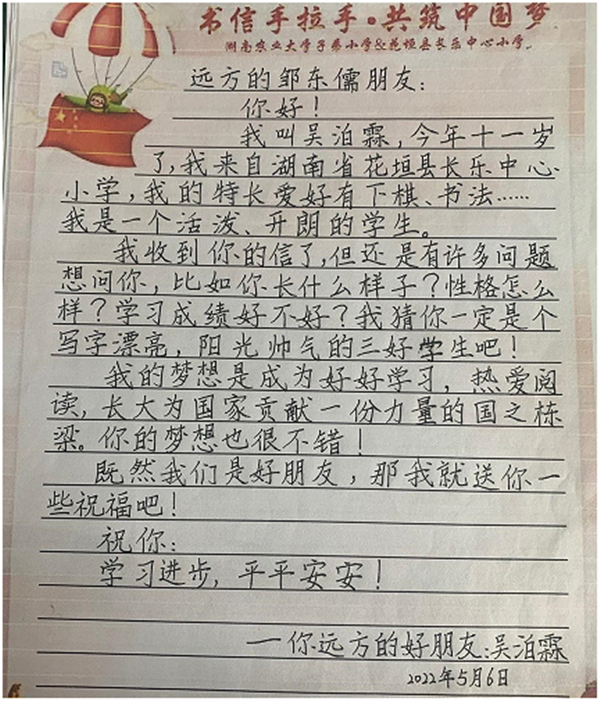 书信手拉手·共筑中国梦
湖南农业大学子弟小学&花垣县长乐中心小学
远方的邹东儒朋友：
你好！
我叫吴泊霖，今年十一岁
了，我来自湖南省花垣县长乐中心
小学，我的特长爱好有下棋、书法……
我是一个活泼、开朗的学生。
我收到你的信了，但还是有许多问题
想问你，比如你长什么样子？性格怎么
样？学习成绩好不好？我猜你一定是个
写字漂亮，阳光帅气的三好学生吧！
我的梦想是成为好好学习，热爱阅
读，长大为国家贡献一份力量的国之栋
梁。你的梦想也很不错！
既然我们是好朋友，那我就送你一
些祝福吧！
祝你：
学习进步，平平安安！
一你远方的好朋友：吴泊霖
2022年5月6日